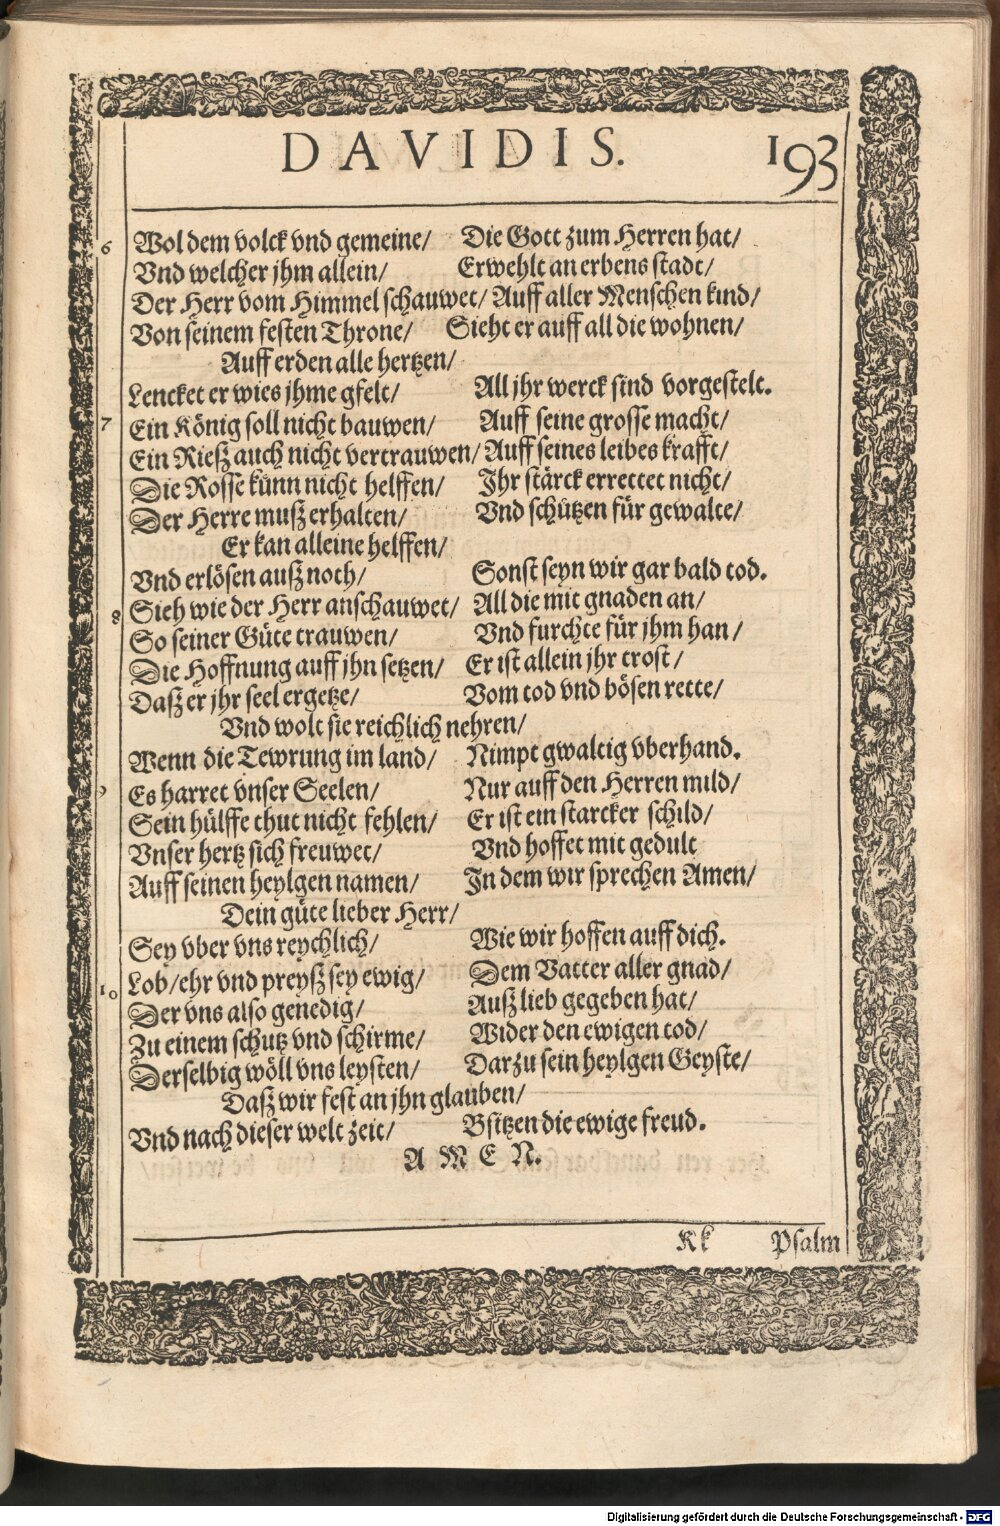 DAVIDIS. 193
6 Wol dem volck vnd gemeine/ Die Gott zum Herren hat/
Vnd welcher jhm allein/ Erwehlt an erbens stadt/
Der Herr vom Himmel schauwet/ Auff aller Menschen kind/
Von seinem festen Throne/ Sieht er auff all die wohnen/
Auff erden alle hertzen/
Lencket er wies jhme gfelt/ All jhr werck sind vorgestelt.
7 Ein König soll nicht bauwen/ Auff seine grosse macht/
Ein Rieß auch nicht vertrauwen/ Auff seines leibes krafft/
Die Rosse künn nicht helffen/ Jhr stärck errettet nicht/
Der Herre muß erhalten/ Vnd schützen für gewalte/
Er kan alleine helffen/
Vnd erlösen auß noth/ Sonst seyn wir gar bald tod.
8 Sieh wie der Herr anschauwet/ All die mit gnaden an/
So seiner Güte trauwen/ Vnd furchte für jhm han/
Die Hoffnung auff jhn setzen/ Er ist allein jhr trost/
Daß er jhr seel ergetze/ Vom tod vnd bösen rette/
Vnd wolt sie reichlich nehren/
Wenn die Tewrung im land/ Nimpt gwaltig vberhand.
9 Es harret vnser Seelen/ Nur auff den Herren mild/
Sein hülffe thut nicht fehlen/ Er ist ein starcker schild/
Vnser hertz sich freuwet/ Vnd hoffet mit gedult
Auff seinen heylgen namen/ In dem wir sprechen Amen/
Dein güte lieber Herr/
Sey vber vns reychlich/ Wie wir hoffen auff dich.
10 Lob/ehr vnd preyß sey ewig/ Dem Vatter aller gnad/
Der vns also genedig/ Auß lieb gegeben hat/
Zu einem schutz vnd schirme/ Wider den ewigen tod/
Derselbig wöll vns leysten/ Darzu sein heylgen Geyste/
Daß wir fest an jhn glauben/
Vnd nach dieser welt zeit/ Bsitzen die ewige freud.
AMEN.
Kk Psalm
Digitalisierung gefördert durch die Deutsche Forschungsgemeinschaft - DFG